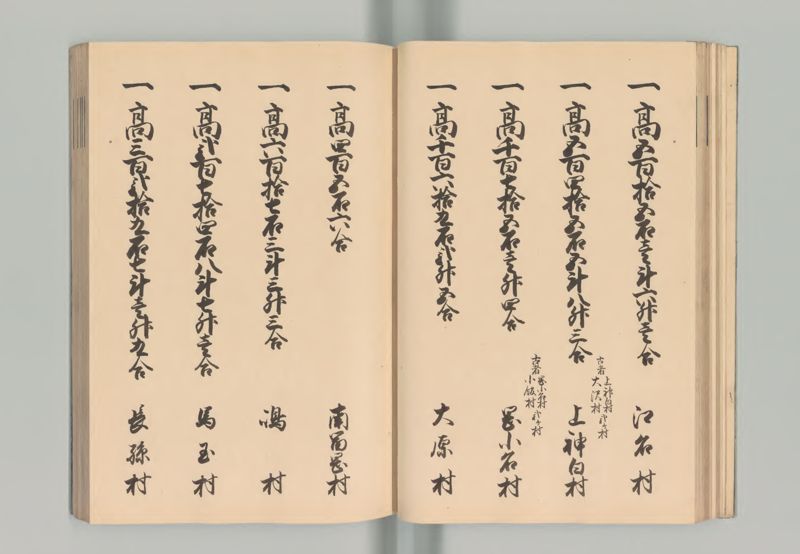 一 高五百拾五石壱斗六升壱合 江名村
一 高五百四拾五石五斗八升三合 上神白村
古者 上神白村 大沢村 弐ヶ村
一 高千百七拾五石壱升四合 岡小名村
古者 岡小名村 小飯村 弐ヶ村
一 高千百六拾九石弐升五合 大原村
一 高四百五石六合 南富岡村
一 高六百拾七石三斗三升三合 嶋村
一 高弐百七拾四石八斗七升壱合 馬玉村
一 高三百弐拾九石七斗壱升九合 長孫村